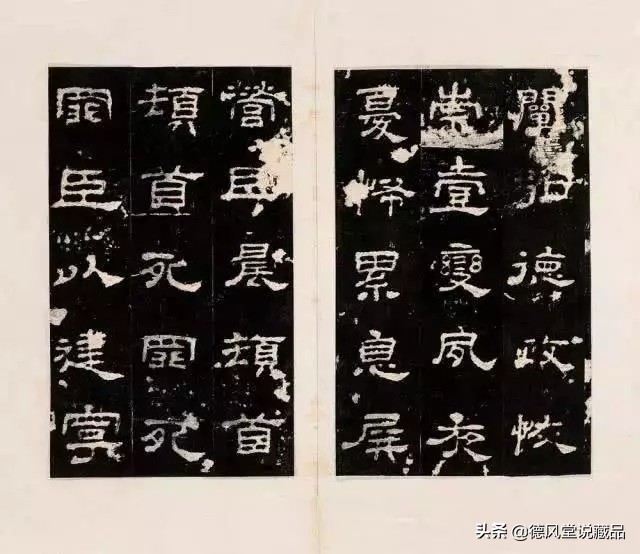 闡弘德政恢
崇壹變夙夜
憂怖累息屏
營臣晨頓首
頓首死罪死
罪臣以建寧
头条 @德风堂说藏品